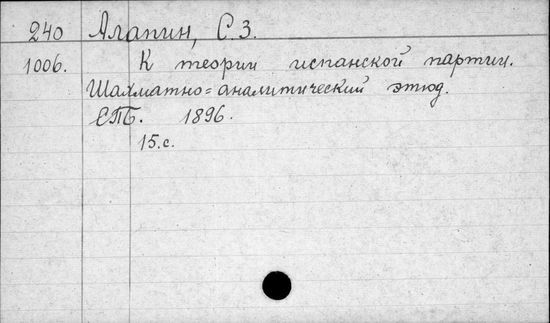 240 Алапин, С.З.
1006. К теории испанской партии.
Шахматно=аналитический этюд.
СПБ. 1896.
15.с.